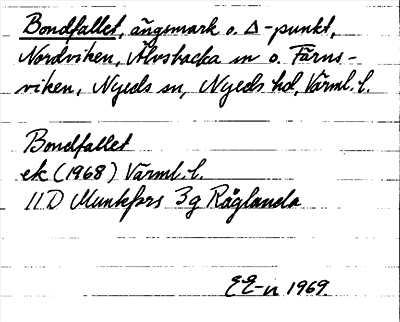 Bondfallet, ängsmark o. Δ-punkt,
Nordviken, Älvsbacka sn o. Färns-
viken, Nyeds sn, Nyeds hd, Värml. l.
Bondfallet
ek (1968) Värml. l.
11D Munkfors 3g Råglanda
EE-n 1969.